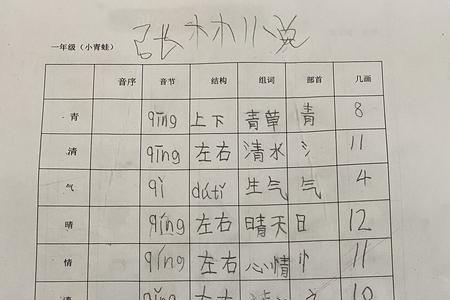 张木木小说
一年级（小青蛙）
音序 音节 结构 组词 部首 几画
青 qīng 上下 青草 青 8
清 qīng 左右 清水 氵 11
气 qì dútǐ 生气 气 4
晴 qíng 左右 晴天 日 12
情 qíng 左右 心情 忄 11
qǐng 左右 10